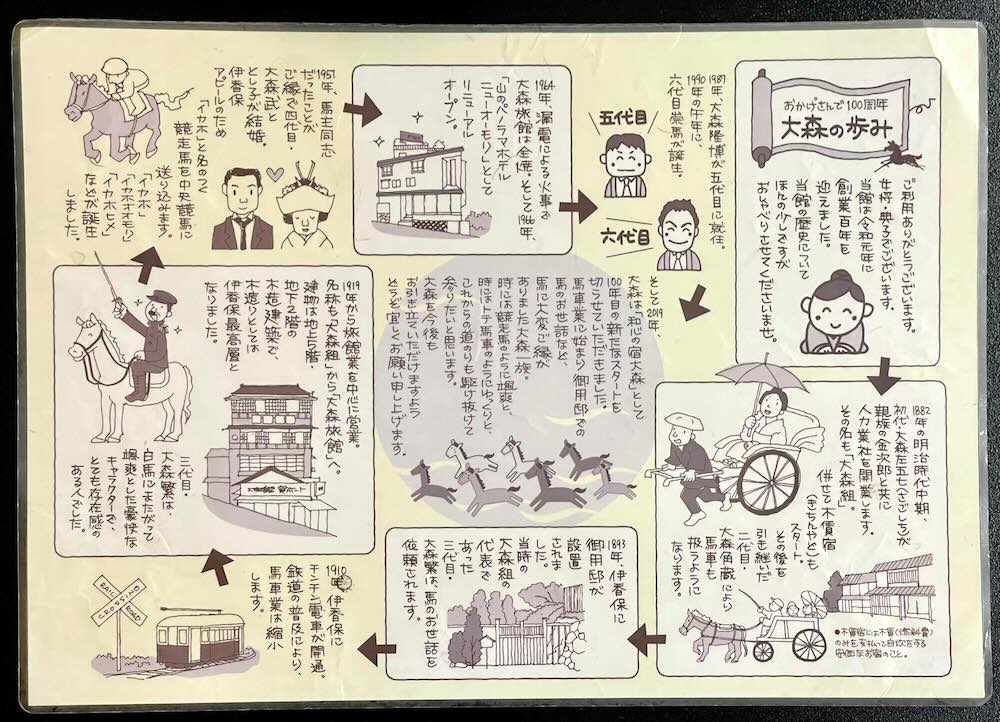 おかげさんで100周年
大森の歩み
ご利用ありがとうございます。
女将・典子でございます。
当館は令和元年に
創業百年を
迎えました。
当館の歴史について
ほんの少しですが
おしゃべりさせてくださいませ。
1882年の明治時代中期、
初代・大森左五七(さごしち)が
親族の金次郎と共に
人力業社を開業します。
その名も「大森組」。
併せて木賃宿
(きちんやど)も
スタート。
その後を
引き継いだ
二代目・
大森角蔵により
馬車も
扱うように
なります。
●木賃宿とは木賃(燃料費)
のみを支払いて自炊をする
安価なお宿のこと。
1893年、伊香保に
御用邸が
設置
されま
した。
当時の
大森組の
代表で
あった
三代目・
大森繁は、馬のお世話を
依頼されます。
1910年、伊香保に
チンチン電車が開通。
鉄道の普及により、
馬車業は縮小
します。
RAIL ROAD
CROSSING
1919年から旅館業を中心に営業。
名称も「大森組」から「大森旅館」へ。
建物は地上5階・
地下2階の
木造建築で、
木造りとしては
伊香保最高層と
なりました。
三代目・
大森繁は、
白馬にまたがって
颯爽とした豪快な
キャラクターで、
とても存在感の
ある人でした。
1957年、馬主同志
だったことが
ご縁で四代目・
大森武と
とし子が結婚。
伊香保
アピールのため
「イカホ」と名のつく
競走馬を中央競馬に
送り込みます。
「イカホ」
「イカホオオモリ」
「イカホヒメ」
などが誕生
しました。
1964年、漏電による火事で
大森旅館は全焼。そして1966年、
「山のパノラマホテル
ニューオーモリ」として
リニューアル
オープン。
1987年、大森隆博が五代目に就任。
1990年の午年に、
六代目崇馬が誕生。
五代目
六代目
そして2019年、
大森は「和心の宿大森」として
100年目の新たなスタートを
切らせていただきました。
馬車業に始まり御用邸での
馬のお世話など、
馬に大変ご縁が
ありました大森一族。
時には競走馬のように颯爽と、
時にはトテ馬車のようにゆっくりと、
これからの道のりも駆け抜けて
参りたいと思います。
大森を今後も
お引き立ていただけますよう
どうぞ宜しくお願い申し上げます。